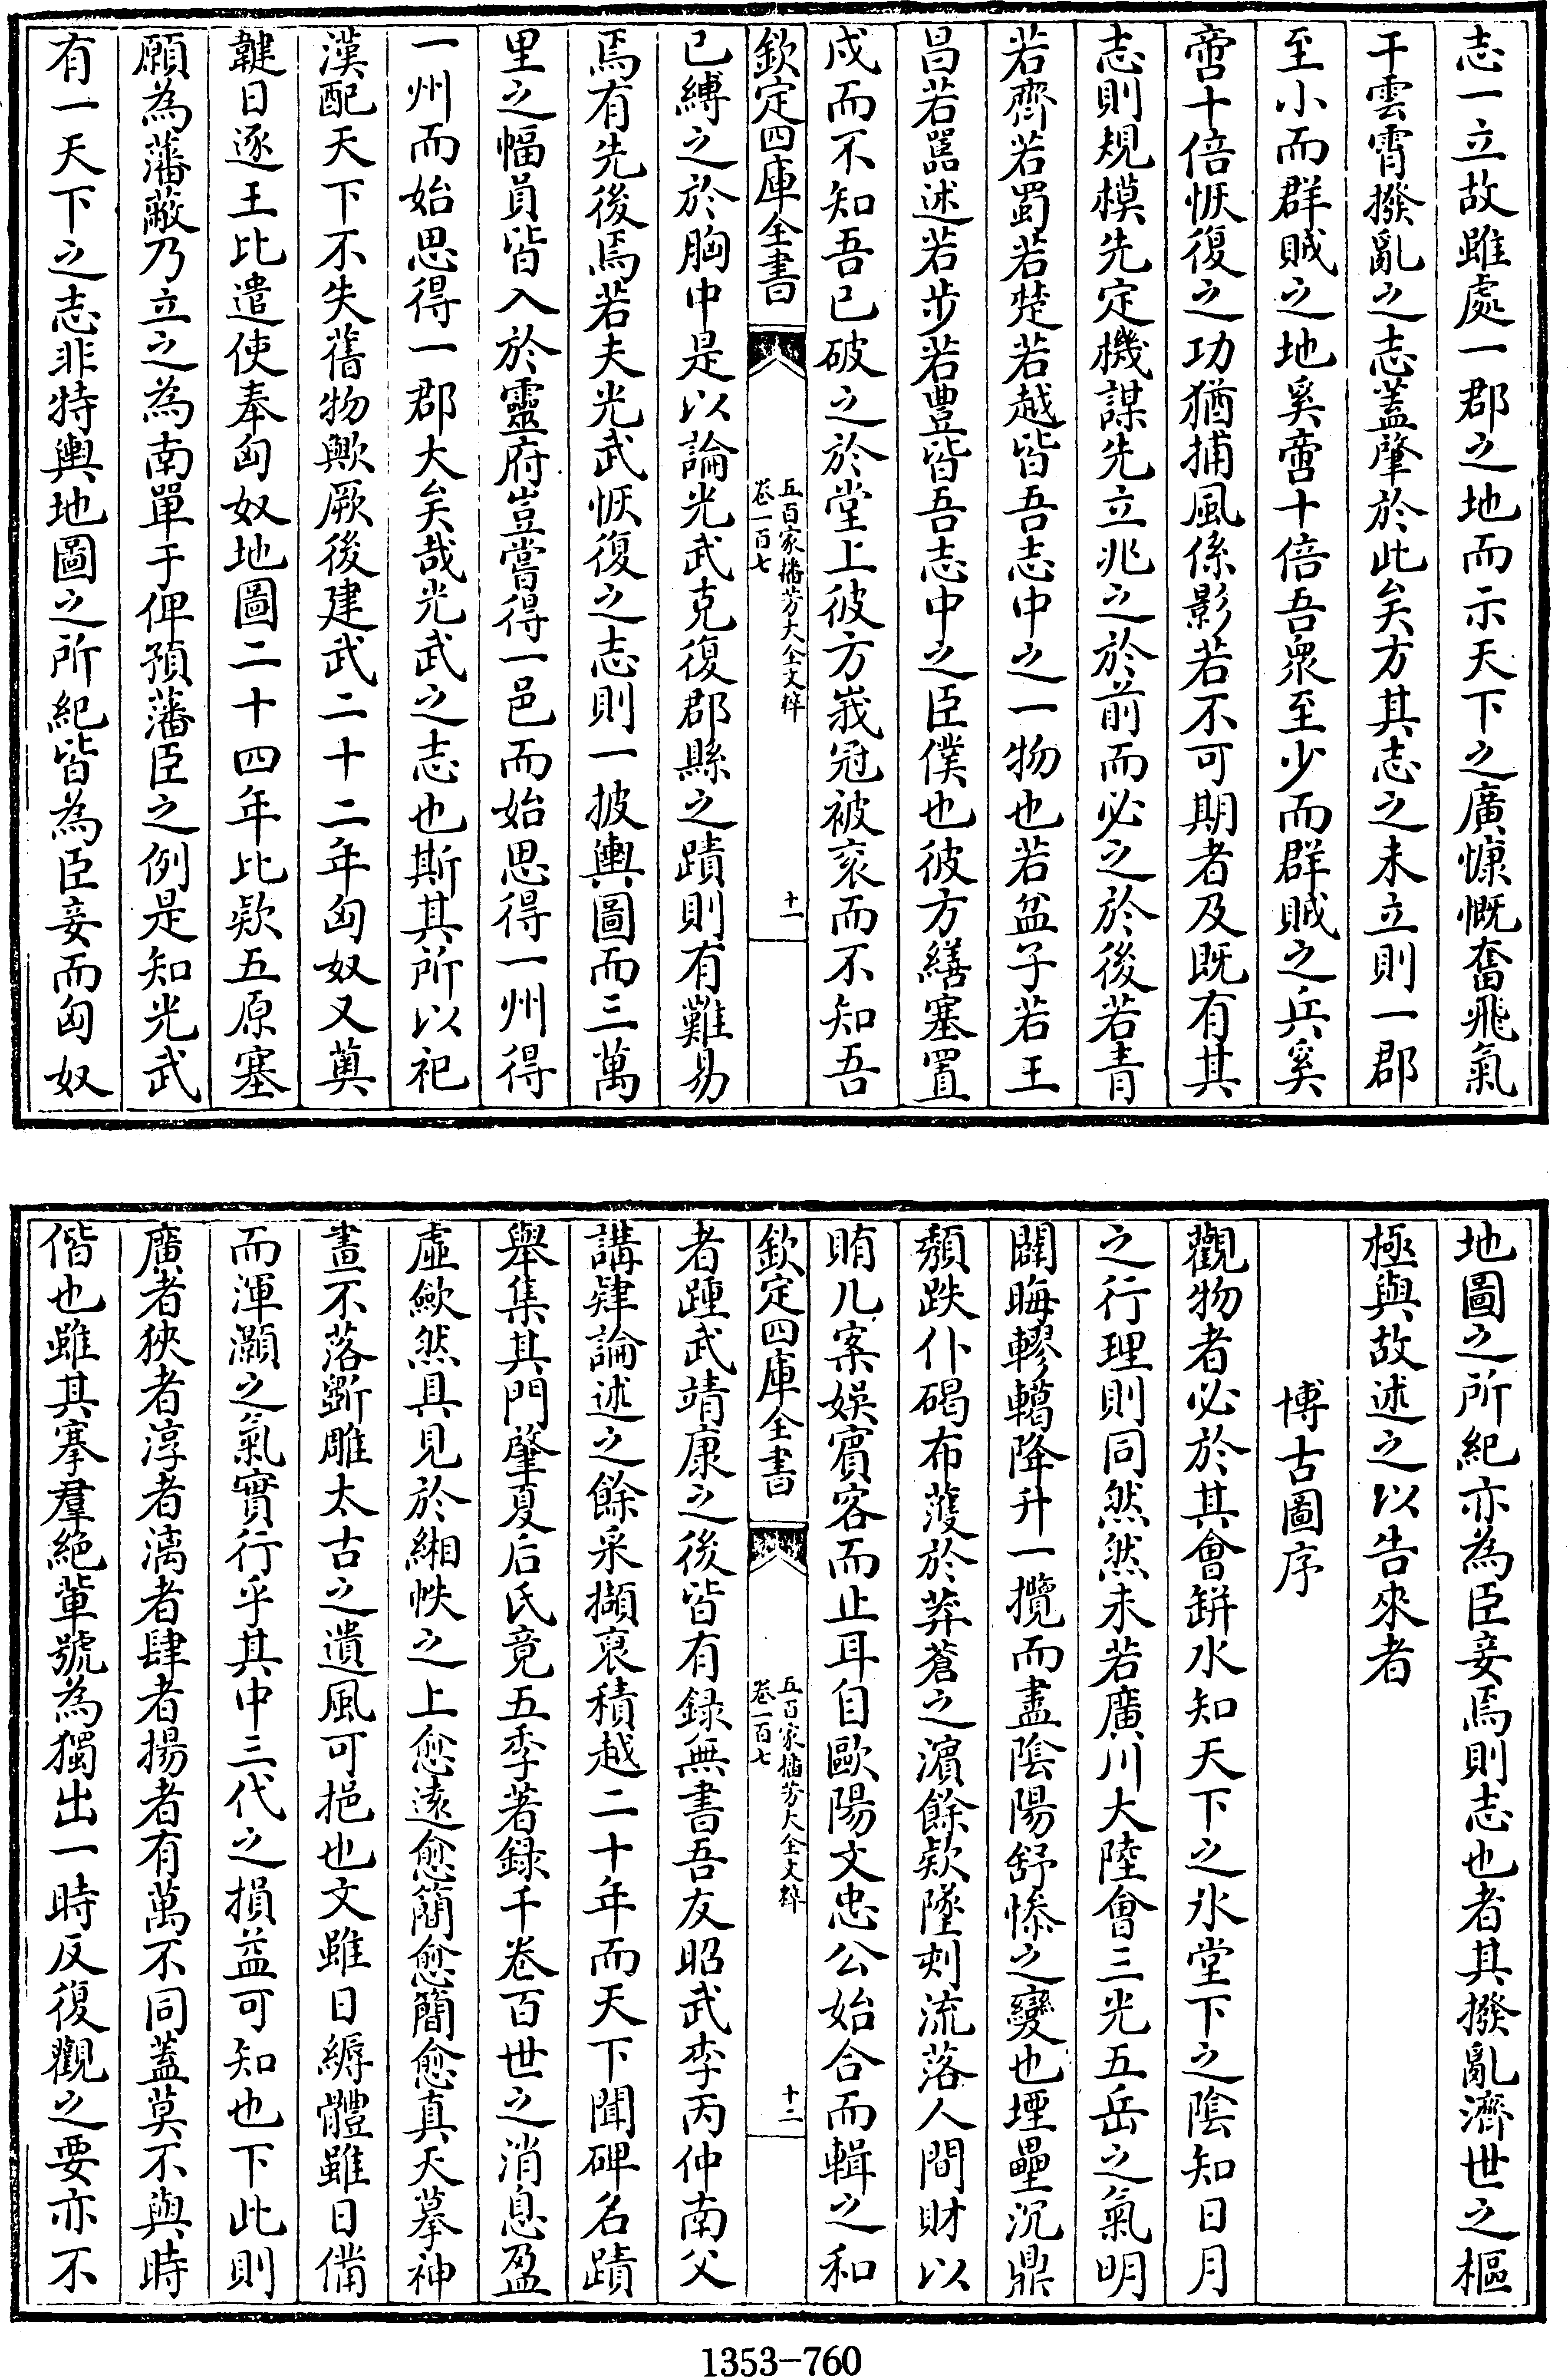 志一立故雖處一郡之地而示天下之廣慷慨奮飛氣
干雲霄撥亂之志蓋肇於此矣方其志之未立則一郡
至小而群賊之地奚啻十倍吾衆至少而群賊之兵奚
啻十倍恢復之功猶捕風係影若不可期者及既有其
志則規模先定機謀先立兆之於前而必之於後若青
若齊若蜀若楚若越皆吾志中之一物也若盆子若王
昌若嚣述若步若豊皆吾志中之臣僕也彼方繕塞置
戍而不知吾已破之於堂上彼方峩冠被衮而不知吾
欽定四庫全書
五百家播芳大全文粹
卷一百七
十一
已縛之於胸中是以論光武克復郡縣之蹟則有難易
焉有先後焉若夫光武恢復之志則一披輿圖而三萬
里之幅員皆入於靈府豈嘗得一邑而始思得一州得
一州而始思得一郡大矣哉光武之志也斯其所以祀
漢配天下不失舊物歟厥後建武二十二年匈奴又薁
鞬日逐王比遣使奉匈奴地圖二十四年比欵五原塞
願為藩蔽乃立之為南單于俾預藩臣之例是知光武
有一天下之志非特輿地圖之所紀皆為臣妾而匈奴
地圖之所紀亦為臣妾焉則志也者其撥亂濟世之樞
極與故述之以告來者
博古圖序
觀物者必於其會缾水知天下之氷堂下之陰知日月
之行理則同然然未若廣川大陸會三光五岳之氣明
闢晦轇轕降升一攬而盡陰陽舒慘之變也堙壘沉鼎
頽跌仆碣布濩於莽蒼之濵餘欵墜刻流落人間財以
賄几案娛賓客而止耳自歐陽文忠公始合而輯之和
欽定四庫全書
五百家播芳大全文粹
卷一百七
十二
者踵武靖康之後皆有録無書吾友昭武李丙仲南父
講肄論述之餘采擷裒積越二十年而天下聞碑名蹟
舉集其門肇夏后氏竟五季著録千卷百世之消息盈
虛歛然具見於緗帙之上愈逺愈簡愈簡愈真天摹神
畫不落斵雕太古之遺風可挹也文雖日縟體雖日備
而渾灝之氣實行乎其中三代之損益可知也下此則
廣者狹者淳者漓者肆者揚者有萬不同蓋莫不與時
偕也雖其搴羣絶軰號為獨出一時反復觀之要亦不
1353-760